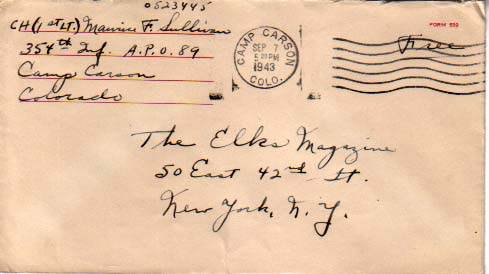 0523445
CH (1st LT.) Maurice F. Sullivan
354th Inf. A.P.O. 89
Camp Carson
Colorado
CAMP CARSON
SEP 7
5 PM
1943
COLO.
FORM 539
Free
The Elks Magazine
50 East 42nd St.
New York, N.Y.